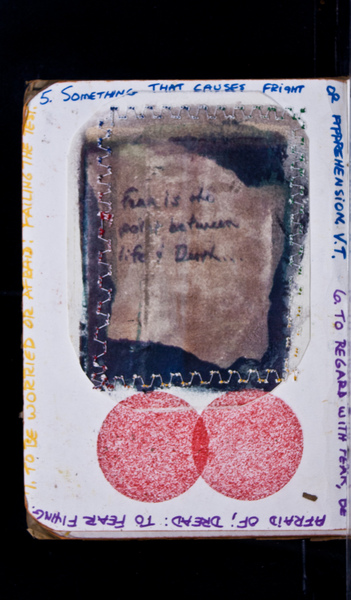 5. SOMETHING THAT CAUSES FRIGHT
OR APPREHENSION V.T. 6. TO REGARD WITH FEAR, BE
AFRAID OF; DREAD: TO FEAR FLYING.
1. TO BE WORRIED OR AFRAID: FAILING THE TEST.
Fear is the
between
life & Death...